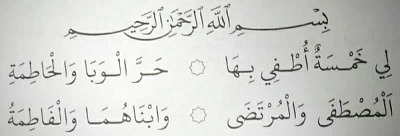 بِسْمِ اللَّهِ الرَّحْمٰنِ الرَّحِيمِ
لِي خَمْسَةٌ أُطْفِي بِهَا ۞ حَرَّ الْوَبَا وَالْحَاطِمَةِ
اَلْمُصْطَفَى وَالْمُرْتَضَى ۞ وَابْنَاهُمَا وَالْفَاطِمَةُ